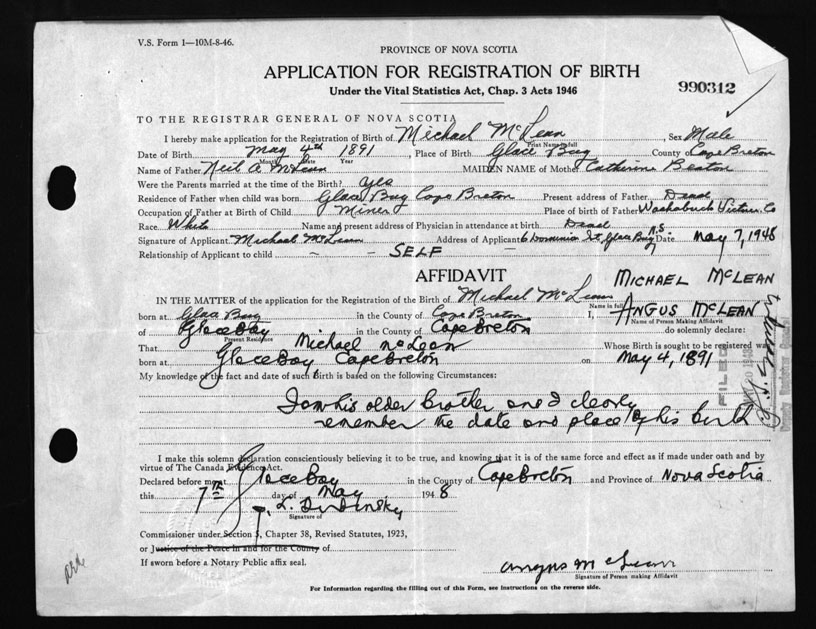 V.S. Form 1—10M-8-46.
PROVINCE OF NOVA SCOTIA
APPLICATION FOR REGISTRATION OF BIRTH
Under the Vital Statistics Act, Chap. 3 Acts 1946
990312
TO THE REGISTRAR GENERAL OF NOVA SCOTIA
I hereby make application for the Registration of Birth of Michael McLean Sex Male
Print Name in full
Date of Birth May 4th 1891, Place of Birth Glace Bay County Cape Breton
Month Date Year
Name of Father Neil A. McLean MAIDEN NAME of Mother Catherine Beaton
Were the Parents married at the time of the Birth? yes
Residence of Father when child was born Glace Bay Cape Breton Present address of Father Dead
Occupation of Father at Birth of Child Miner Place of birth of Father Washabuck Victoria Co
Race White Name and present address of Physician in attendance at birth Dead
Signature of Applicant Michael McLean Address of Applicant 6 Dominion St. Glace Bay N.S. Date May 7, 1948
Relationship of Applicant to child – – SELF –
AFFIDAVIT
MICHAEL McLEAN
IN THE MATTER of the application for the Registration of the Birth of Michael McLean
Name in full
born at Glace Bay in the County of Cape Breton I, ANGUS McLEAN
Name of Person Making Affidavit
of Glace Bay in the County of Cape Breton do solemnly declare:
Present Residence
That Michael McLean Whose Birth is sought to be registered was
born at Glace Bay, Cape Breton on May 4, 1891
My knowledge of the fact and date of such Birth is based on the following Circumstances:
I am his older Brother and I clearly
remember the date and place of his birth
FILED
1948
Deputy Registrar General
I make this solemn declaration conscientiously believing it to be true, and knowing that it is of the same force and effect as if made under oath and by
virtue of The Canada Evidence Act.
Declared before me at Glace Bay in the County of Cape Breton and Province of Nova Scotia
this 7th day of May 1948
Signature of
Commissioner under Section 5, Chapter 38, Revised Statutes, 1923,
or Justice of the Peace in and for the County of
If sworn before a Notary Public affix seal.
Angus McLean
Signature of Person making Affidavit
For Information regarding the filling out of this Form, see instructions on the reverse side.